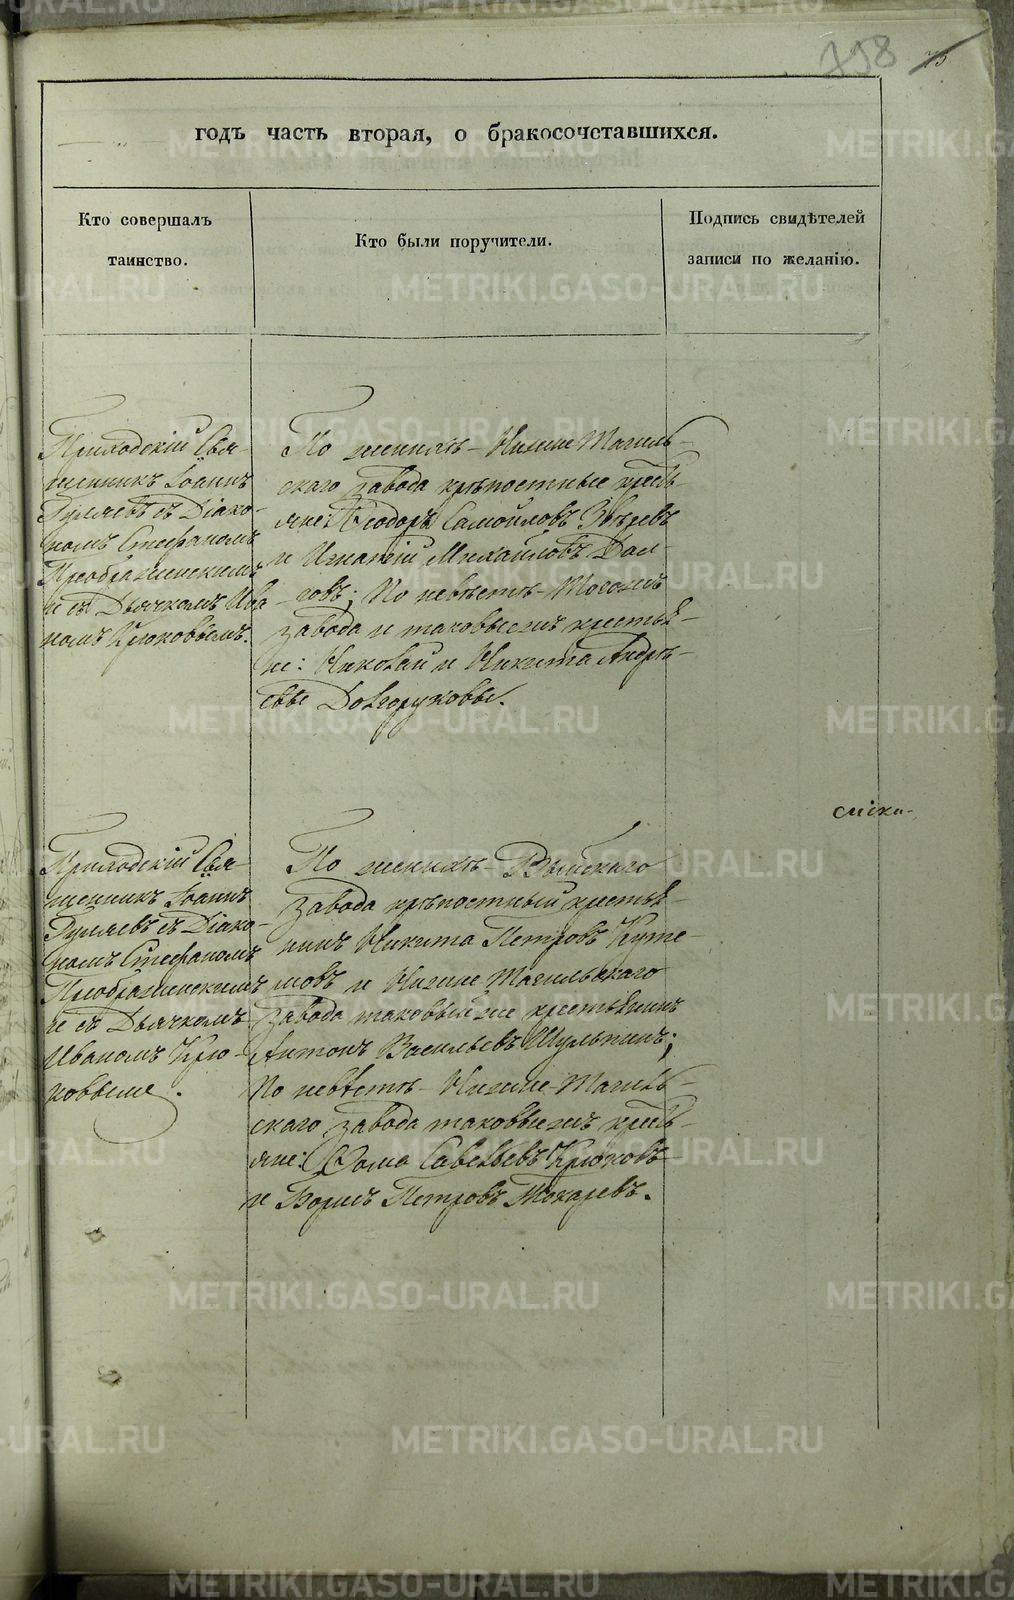 798 75
годъ часть вторая, о бракосочетавшихся.
Кто совершалъ
таинство.
Кто были поручители.
Подпись свидѣтелей
записи по желанію.
Приходскій Свя-
щенникъ Іоаннъ
Гуляевъ съ Діако-
номъ Стефаномъ
Преображенскимъ
и съ Дьячкомъ Ива
номъ Крюковымъ.
По женихѣ - Нижне Тагиль-
скаго завода крѣпостные кресть
яне: Ѳеодоръ Самойловъ Звѣревъ
и Игнатій Михайловъ Дол-
говъ; По невѣстѣ - Тогожъ
завода и таковыежъ крестья-
не: Николай и Никита Андрѣ-
евы Долгоруковы.
Приходскій Свя-
щенникъ Іоаннъ
Гуляевъ съ Діако-
номъ Стефаномъ
Преображенскимъ
и съ Дьячкомъ
Иваномъ Крю-
ковымъ.
По женихѣ Выйскаго
завода крѣпостный крестья-
нинъ Никита Петровъ Куте-
мовъ и Нижне Тагильскаго
завода таковый же крестьянинъ
Антонъ Васильевъ Шульпинъ;
По невѣстѣ - Нижне-Тагиль-
скаго завода таковыежъ кресть-
яне: Ѳома Савельевъ Крюковъ
и Борисъ Петровъ Токаревъ.
METRIKI.GASO-URAL.RU